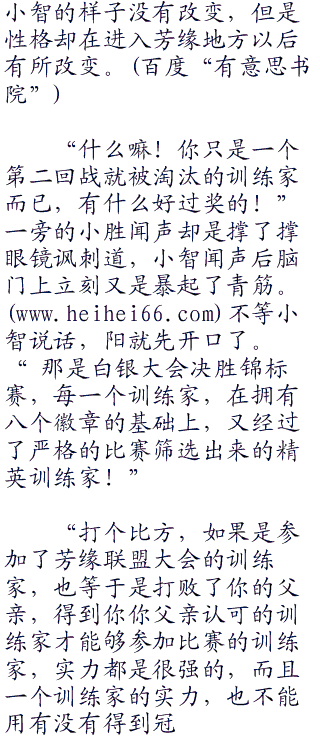 小智的样子没有改变，但是
性格却在进入芳缘地方以后
有所改变。(百度“有意思书
院”)
“什么嘛！你只是一个
第二回战就被淘汰的训练家
而已，有什么好过奖的！”
一旁的小胜闻声却是撑了撑
眼镜讽刺道，小智闻声后脑
门上立刻又是暴起了青筋。
(www.heihei66.com)不等小
智说话，阳就先开口了。
“ 那是白银大会决胜锦标
赛，每一个训练家，在拥有
八个徽章的基础上，又经过
了严格的比赛筛选出来的精
英训练家！”
“打个比方，如果是参
加了芳缘联盟大会的训练
家，也等于是打败了你的父
亲，得到你你父亲认可的训
练家才能够参加比赛的训练
家，实力都是很强的，而且
一个训练家的实力，也不能
用有没有得到冠